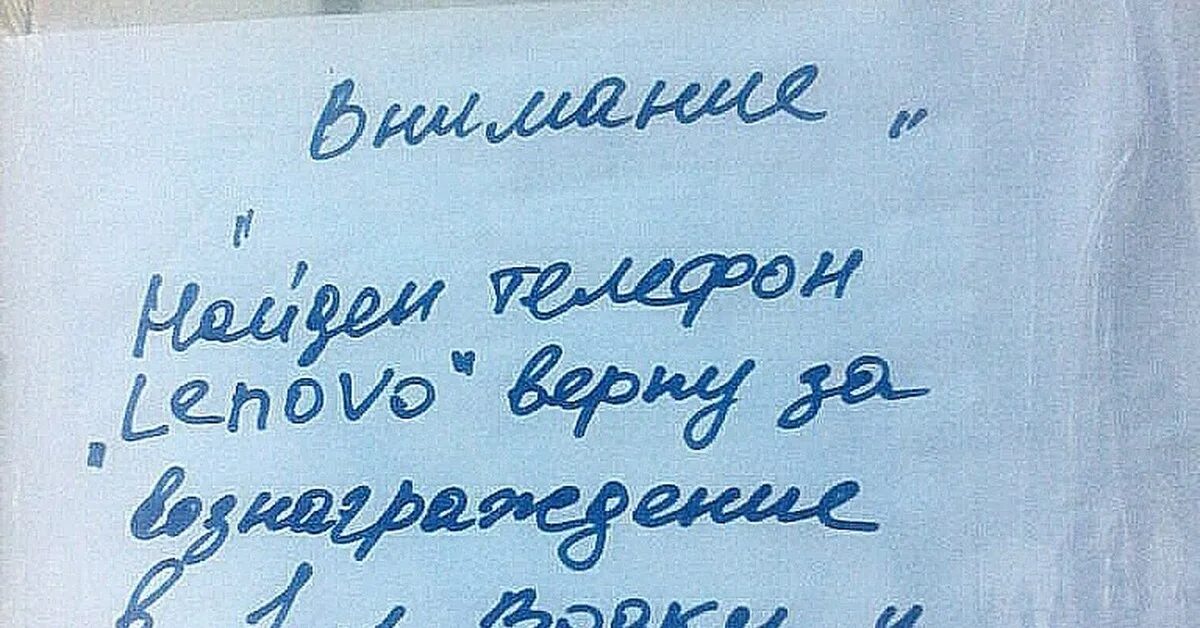 Внимание "
"
Найден телефон
"Lenovo" верну за
вознаграждение
в 1 л водки и